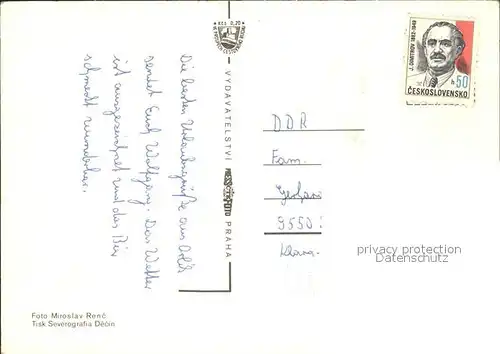 Die besten Urlaubsgrüße aus
sendet Euch Wolfgang. Das Wetter
ist ausgezeichnet und das Bier
schmeckt wunderbar.
KČS 0,20
VYDAVATELSTVÍ
PRESSFOTO
PRAHA
J. DIMITROV 1882-1949
50
h
ČESKOSLOVENSKO
DDR
Fam.
9550
privacy protection
ansichtskartenversand.com
Foto Miroslav Renč
Tisk Severografia Děčín